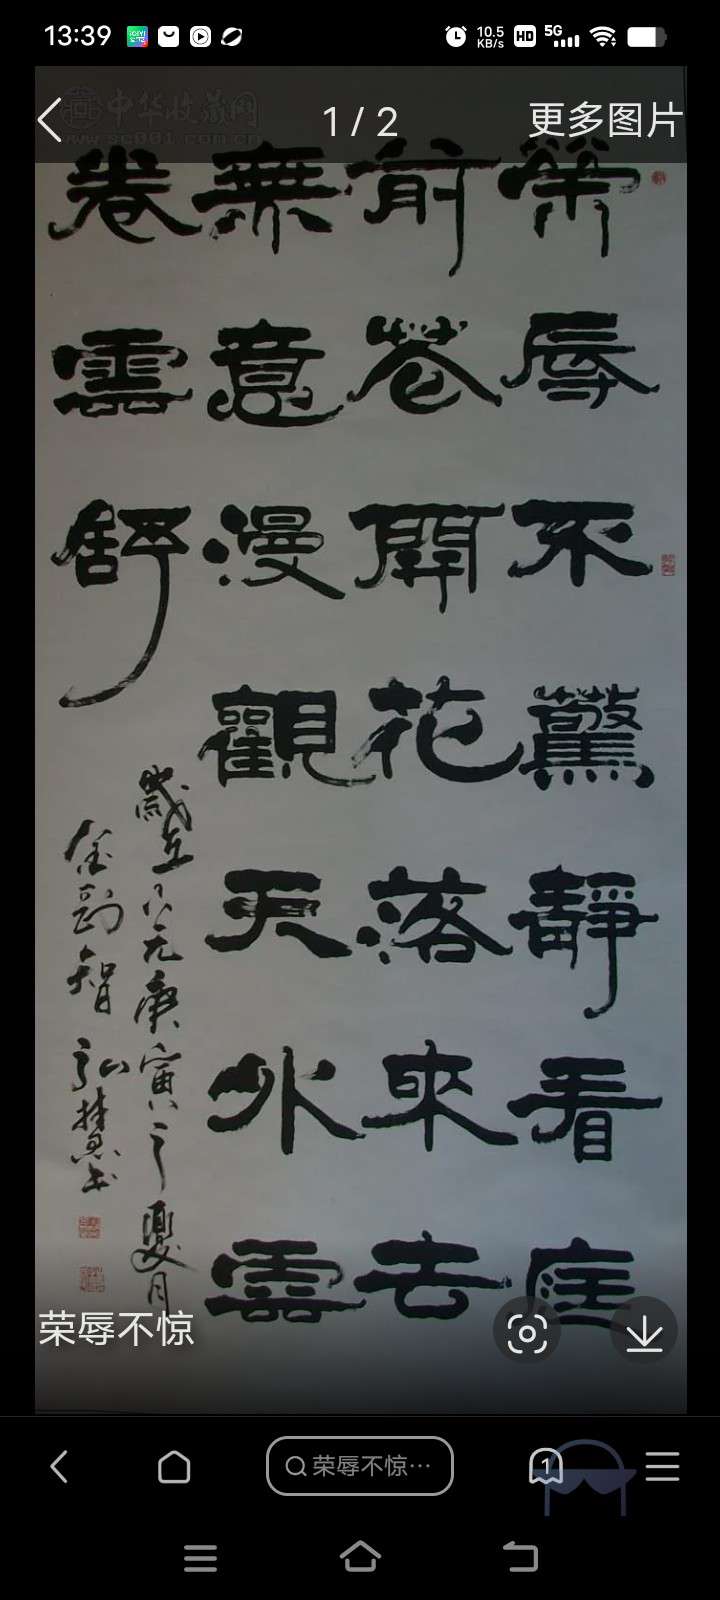 13:39
10.5 KB/s
HD
5G
中华收藏网
www.sc001.com.cn
1 / 2
更多图片
榮辱不驚靜看庭
前芲開花落來去
無意漫觀天外雲
卷雲舒
歲在公元庚寅之夏月
金剛智弘慧书
荣辱不惊
荣辱不惊…
1